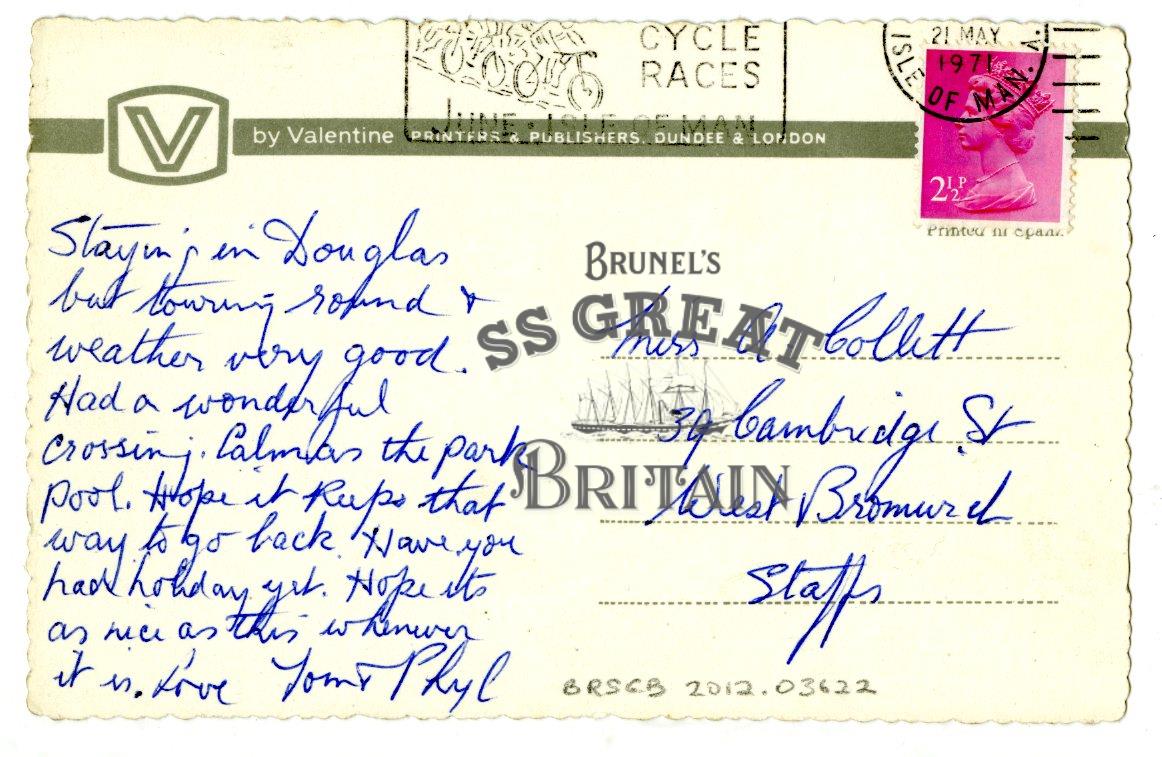 CYCLE
RACES
JUNE · ISLE OF MAN
21 MAY
1971
ISLE OF MAN. A.
V
by Valentine PRINTERS & PUBLISHERS, DUNDEE & LONDON
2½P
Printed in Spain.
Staying in Douglas
but touring round &
weather very good.
Had a wonderful
crossing. Calm as the park
pool. Hope it keeps that
way to go back. Have you
had holiday yet. Hope its
as nice as this whenever
it is. Love Tom & Phyl
BRUNEL'S
SS GREAT
BRITAIN
Miss A Collett
39 Cambridge St
West Bromwich
Staffs
BRSGB 2012.03622